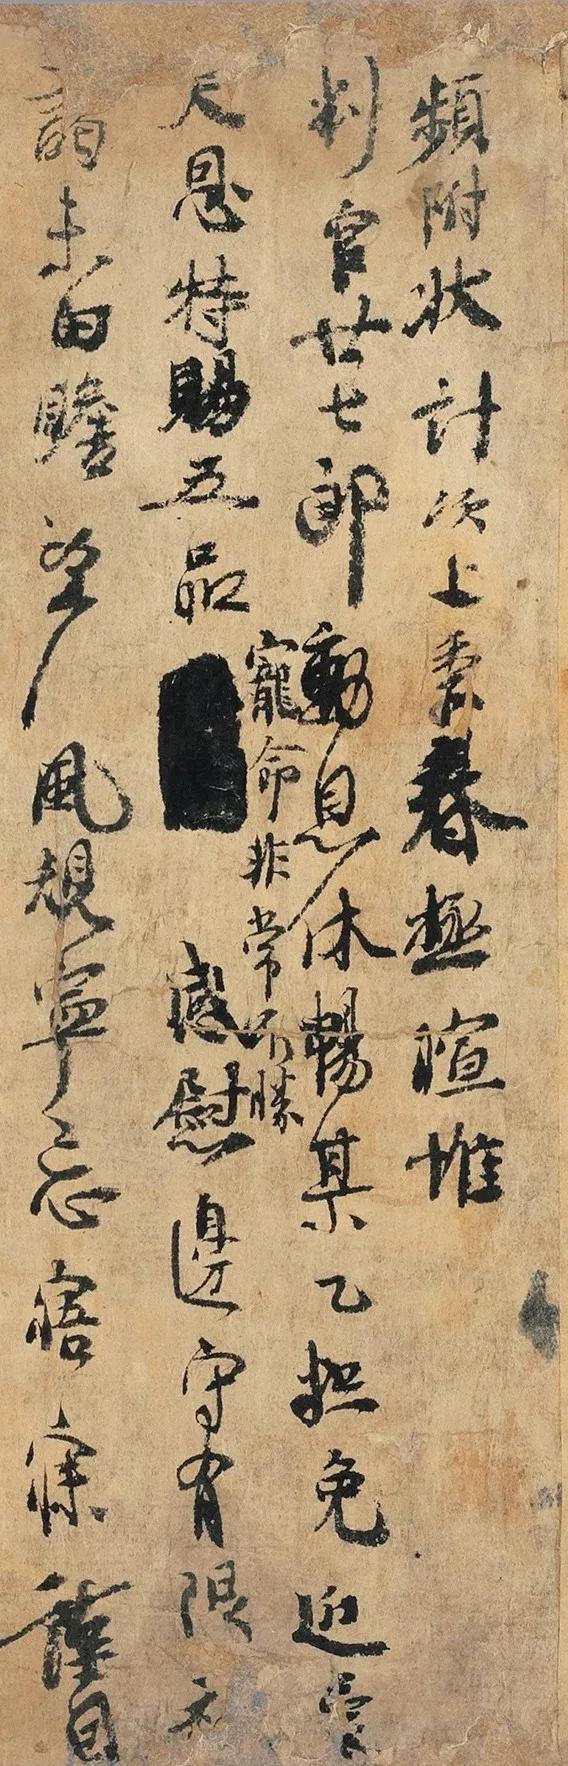 頻附狀計次上黍春極暄惟
判官廿七郎動息休暢某乙推免近蒙
寵命非常不勝
天恩特賜五品感慰邊守有限
謁未由瞻望風規寧忘寤寐謹因